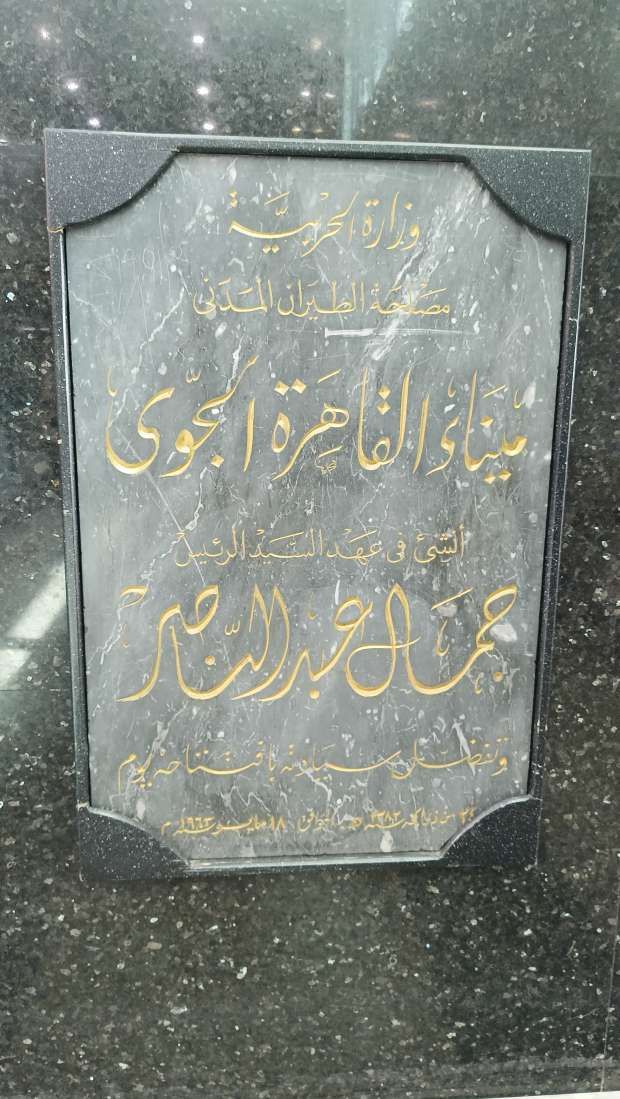 وزارة الحربية
مصلحة الطيران المدنى
ميناء القاهرة الجوى
أنشئ فى عهد السيد الرئيس
جمال عبد الناصر
وتفضل سيادته بافتتاحه يوم
ذى الحجة سنة ١٣٨٢ هـ الموافق ١٨ مايو سنة ١٩٦٣ م